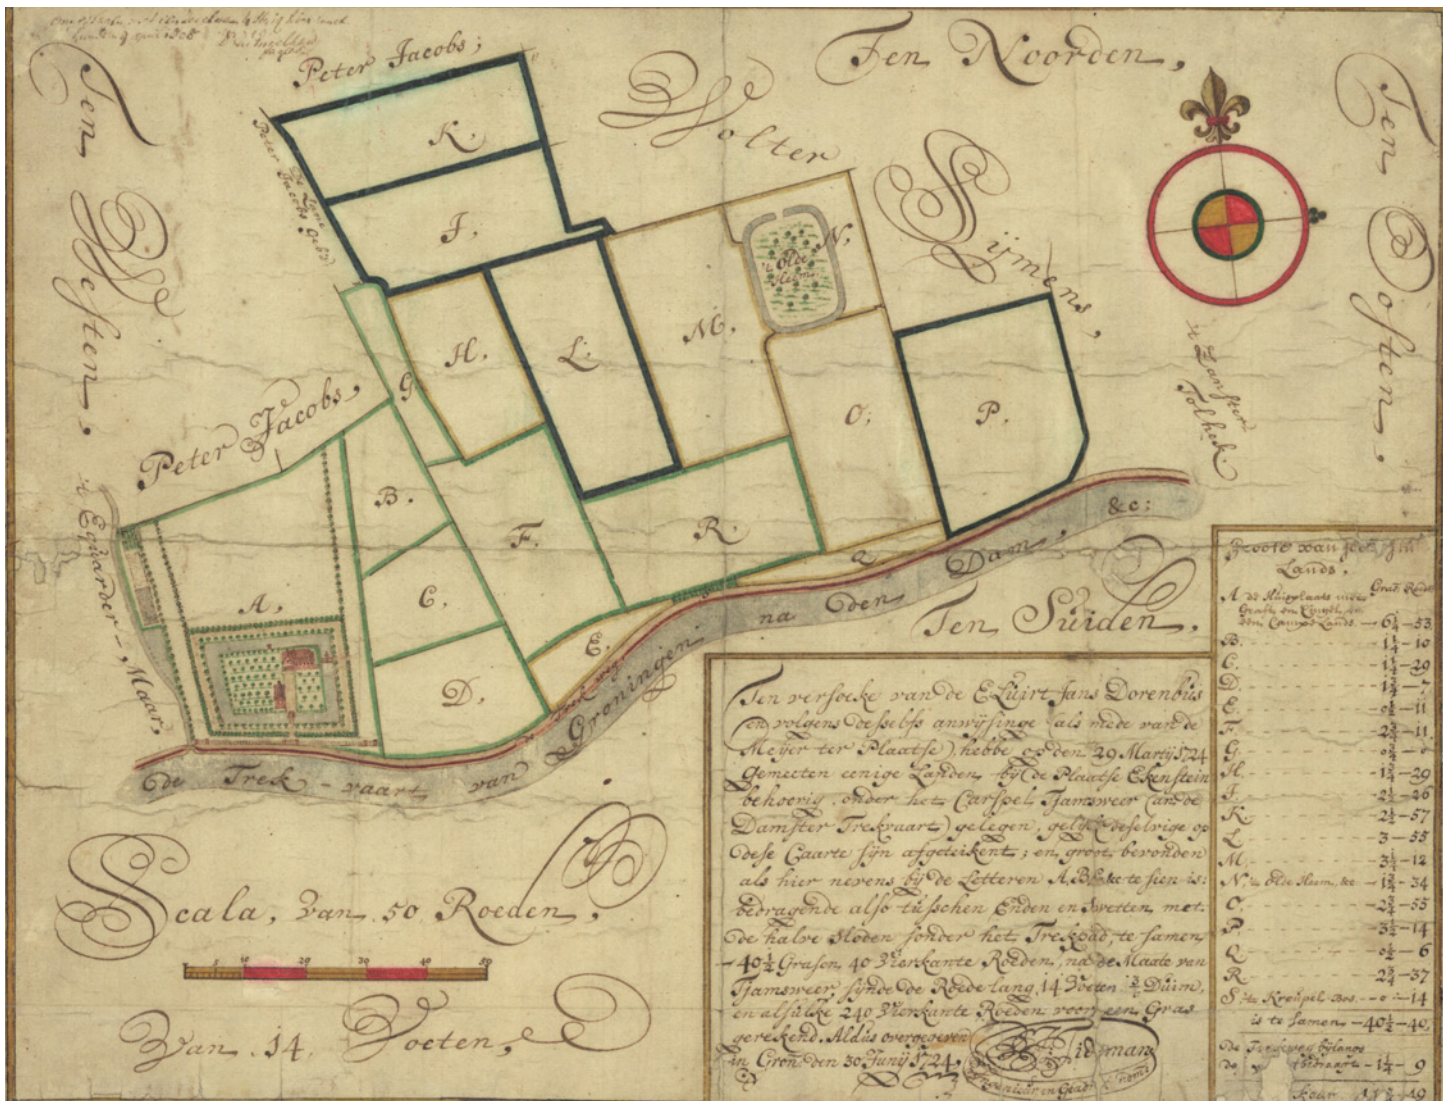 Peter Jacobs;
Ten Noorden,
Ten Westen,
Wolter
Sijmens,
Ten Oosten,
K.
J.
Peter
De Lane
Jacobs
N.
't Olde
Heem
H.
L.
M.
G.
O;
P.
't Zanster
Tolheck
Peter Jacobs,
B.
F.
R.
A,
C.
E.
D.
Q
't Equarder-Maar,
Trek weg
de Trek-vaart van Groningen na den Dam, &c:
Ten Süiden.
Scala, Van 50 Roeden,
10 20 30 40 50
Van 14, Voeten,
Ten versoeke van de E. Lüirt Jans Dorenbüs
en volgens desselfs anwijsinge (als mede van de
Meijer ter Plaatse) hebbe op den 29 Martij 1724
gemeeten eenige Landen, bij de Plaatse Ekenstein
behoorig, onder het Carspel Tjamsweer (an de
Damster Trekvaart) gelegen, gelijk deselvige op
dese Caarte sijn afgeteikent; en groot bevonden
als hier nevens bij de Letteren A, B, &c te sien is:
bedragende also tüsschen Enden en Swetten met
de halve Sloden sonder het Trekpad, te samen
-40½ Grasen 40 Vierkante Roeden, na de Maate van
Tjamsweer, sijnde de Roede lang 14 Voeten ¾ Duim,
en alsülke 240 Vierkante Roeden voor een Gras
gerekend. Aldüs overgegeven
in Gron: den 30 Junij 1724.
Tideman
Groote van
Lands.
Gras: Roed:
A de Huisplaats met
Graft en Cingel, en
een Camp Lands - 6¼-53
B. 1¼-10
C. 1¼-29
D. 1¾-7
E. 0½-11
F. 2¾-11
G. 0¾-
H. 1¾-29
J. 2½-26
K. 2½-57
L 3-55
M. 3½-12
N. 't Olde Heem, &c - 1¾-34
O. 2¾-55
P. 3½-14
Q 0½-6
R. 2¾-37
S 't Kreupel-Bos. - 0-14
is te samen - 40½-40,
De Trekweg bijlangs
de 1¼-9